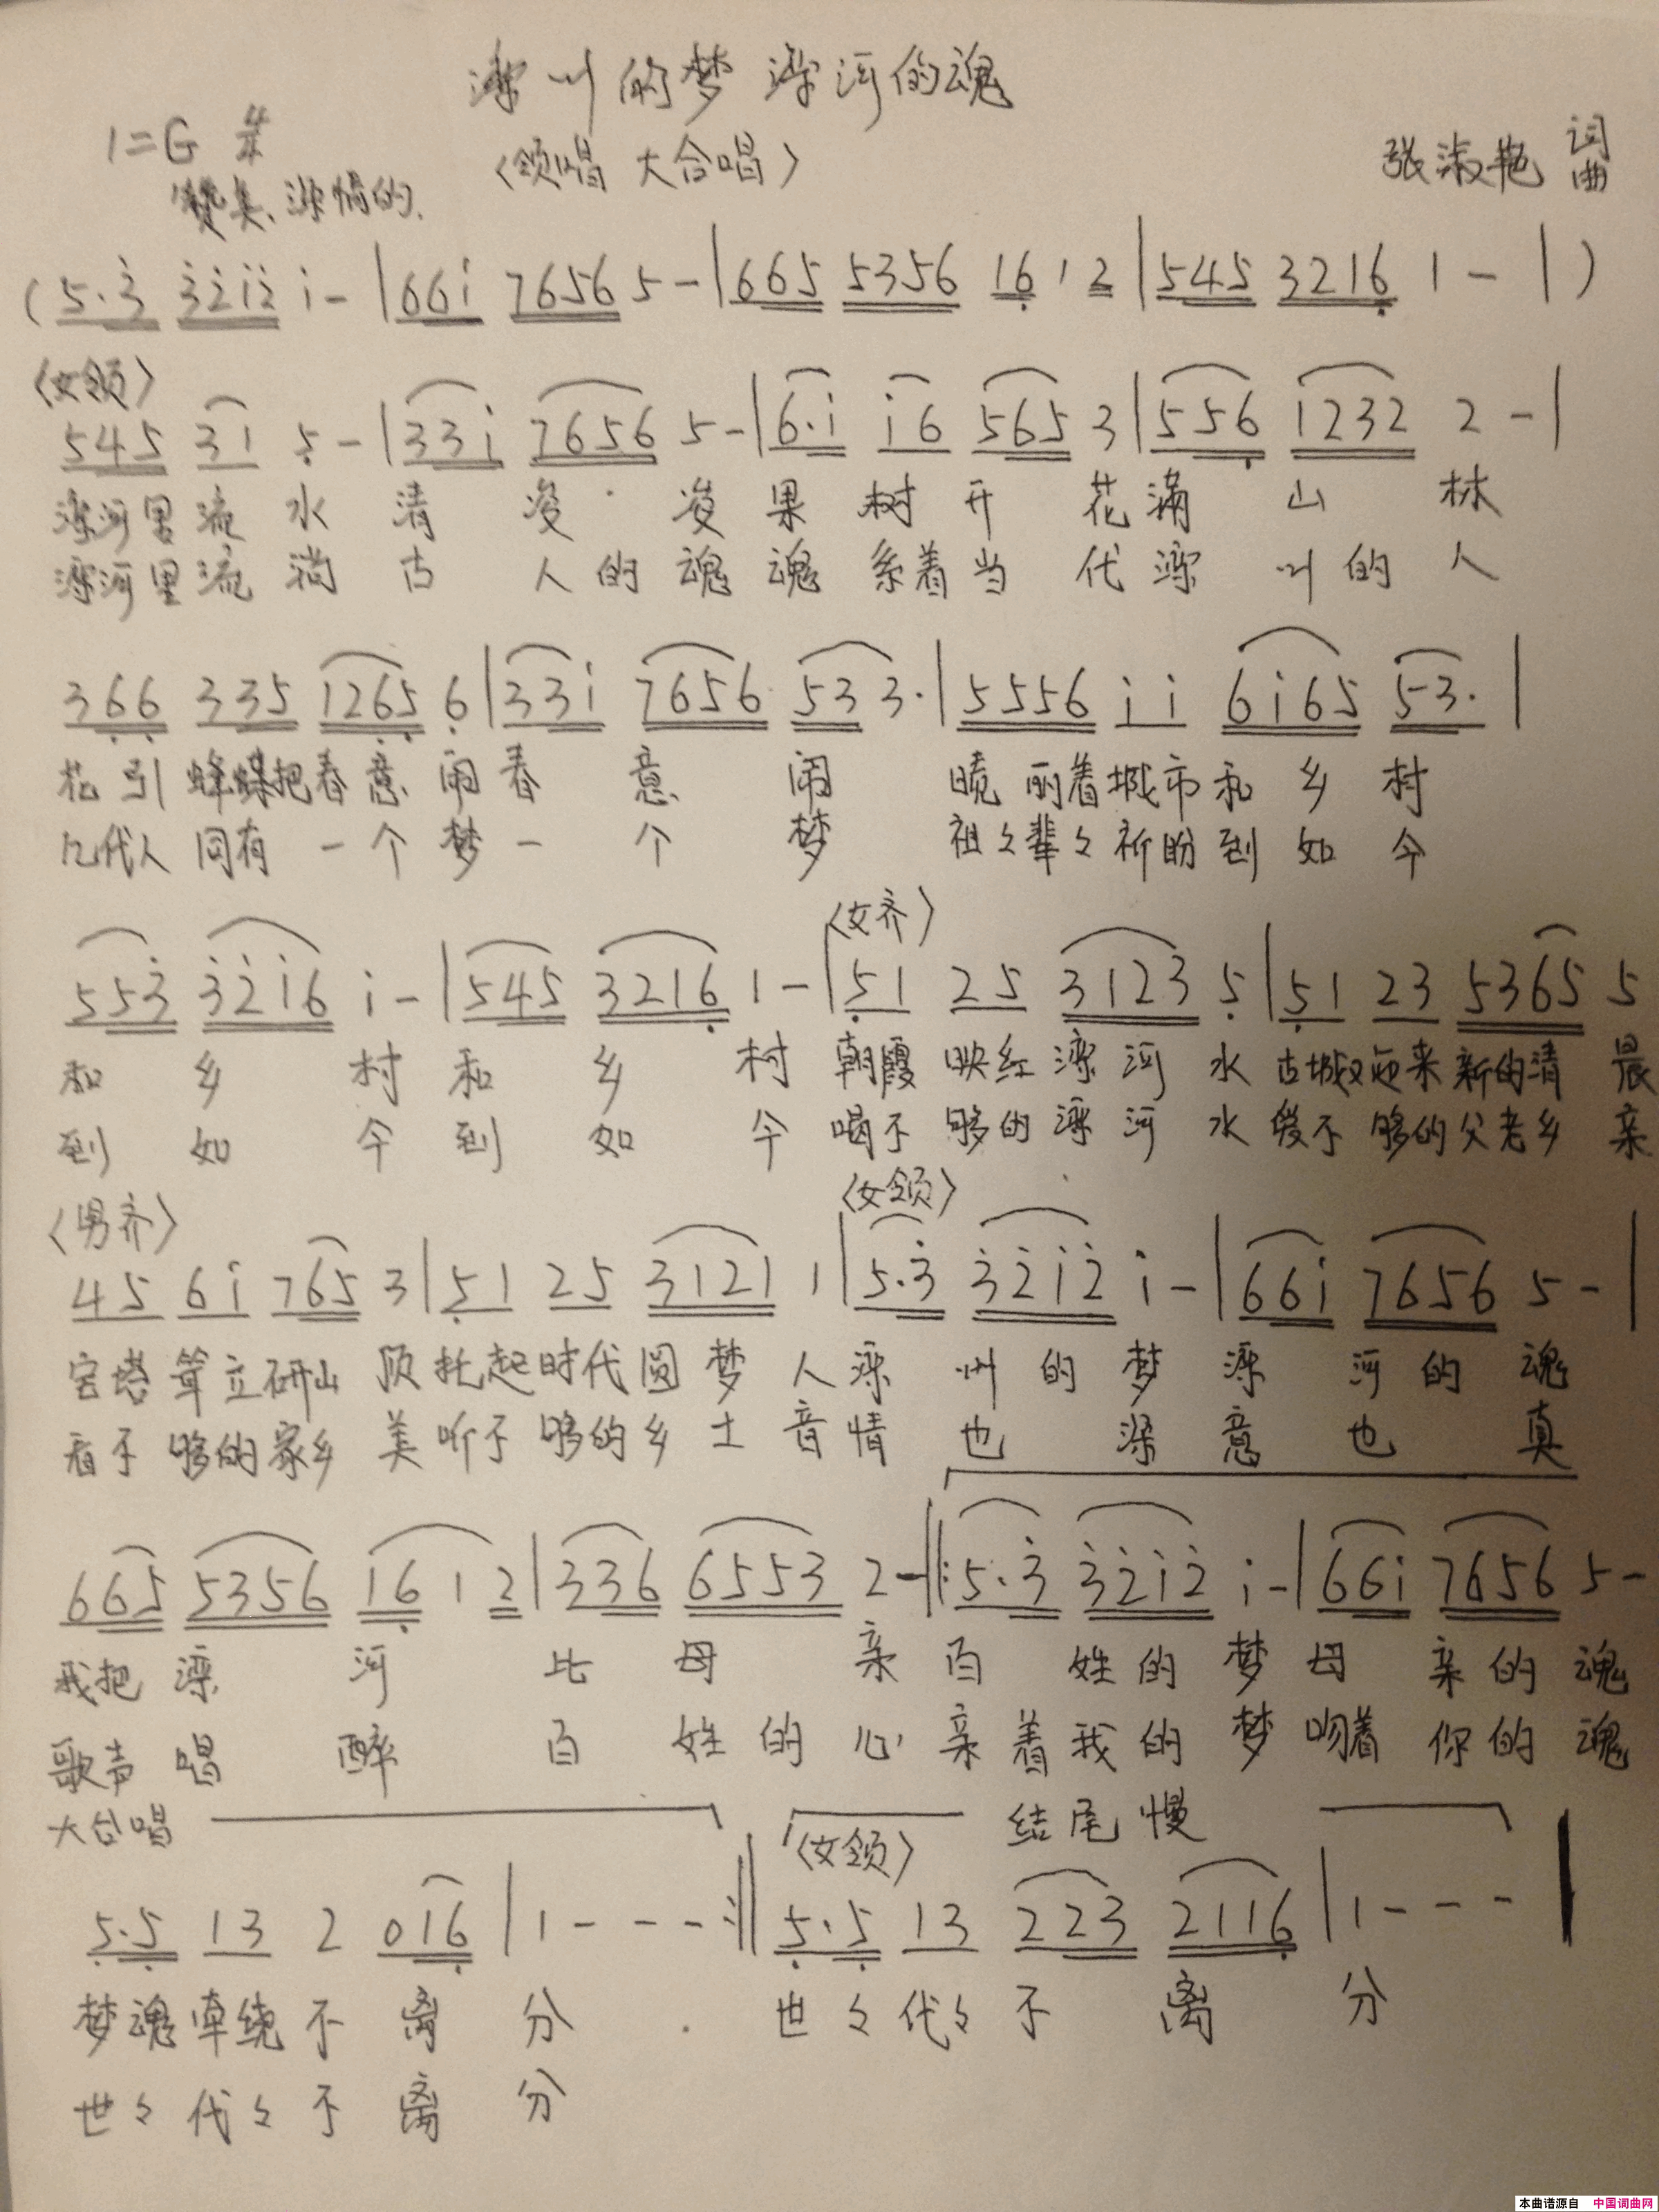 滦州的梦 滦河的魂
1=G 4/4
〈领唱 大合唱〉
张淑艳 词曲
赞美、深情的.
( 5·3̇ 3̇2̇1̇2̇ 1̇ - | 661̇ 7656 5 - | 665 5356 16̣ 1 2 | 545 3216̣ 1 - | )
〈女领〉
545 31 5̣ - | 331̇ 7656 5 - | 6·1̇ 1̇6 565 3 | 556̣ 1232 2 - |
滦河里流水清凌凌果树开花满山林
滦河里流淌古人的魂魂系着当代滦州的人
36̣6̣ 335 126̣5̣ 6̣ | 331̇ 7656 533 3· | 5556 1̇ 1̇ 61̇65 53· |
花引蜂蝶把春意闹春意闹 晓丽着城市和乡村
几代人同有一个梦一个梦 祖々辈々祈盼到如今
〈女齐〉
553̇ 3̇2̇1̇6 1̇ - | 545 3216̣ 1 - | 5̣1 25 3123 5̣ | 5̣1 23 5365 5
和乡村和乡村朝霞映红滦河水古城又迎来新的清晨
到如今到如今喝不够的滦河水爱不够的父老乡亲
〈男齐〉 〈女领〉
45 61̇ 765 3 | 5̣1 25 3121 1 | 5·3̇ 3̇2̇1̇2̇ 1̇ - | 661̇ 7656 5 - |
宝塔耸立研山顶托起时代圆梦人滦州的梦滦河的魂
看不够的家乡美听不够的乡土音情也深意也真
665 5356 16̣ 1 2 | 336 6553 2 - ‖: 5·3̇ 3̇2̇1̇2̇ 1̇ - | 661̇ 7656 5 -
我把滦河比母亲百姓的梦母亲的魂
歌声唱醉百姓的心亲着我的梦吻着你的魂
大合唱 结尾慢
〈女领〉
5̣·5̣ 13 2 016̣ | 1 - - - :‖ 5̣·5̣ 13 223 2116̣ | 1 - - - |
梦魂牵绕不离分 世々代々不离分
世々代々不离分
本曲谱源自 中国词曲网